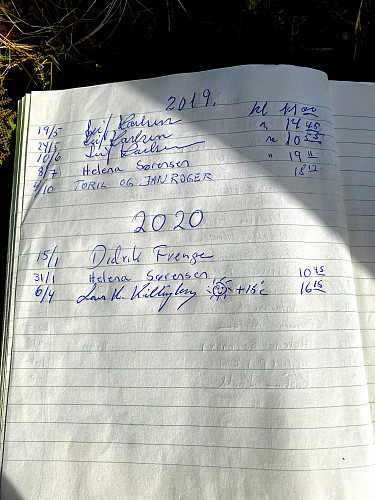 2019.
19/5 Leif Karlsen kl 11 00
24/5 Leif Karlsen " 14 45
10/6 Leif Karlsen " 10 55
8/7 Helena Sørensen " 19 11
4/10 TORIL OG JAN ROGER 15 12
2020
15/1 Didrik Frenge
31/1 Helena Sørensen 10 45
6/4 +15°C 16 15